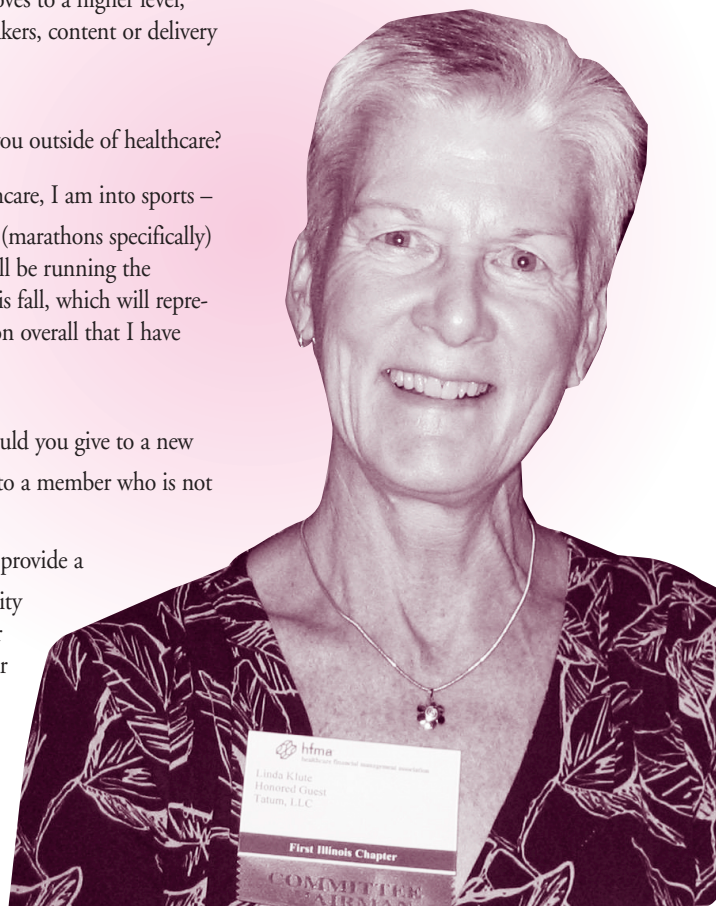 oves to a higher level,
kers, content or delivery
ou outside of healthcare?
hcare, I am into sports –
(marathons specifically)
ll be running the
is fall, which will repre-
on overall that I have
uld you give to a new
to a member who is not
provide a
ity
r
r
hfma
healthcare financial management association
Linda Klute
Honored Guest
Tatum, LLC
First Illinois Chapter
COMMITTEE
AIRMAN